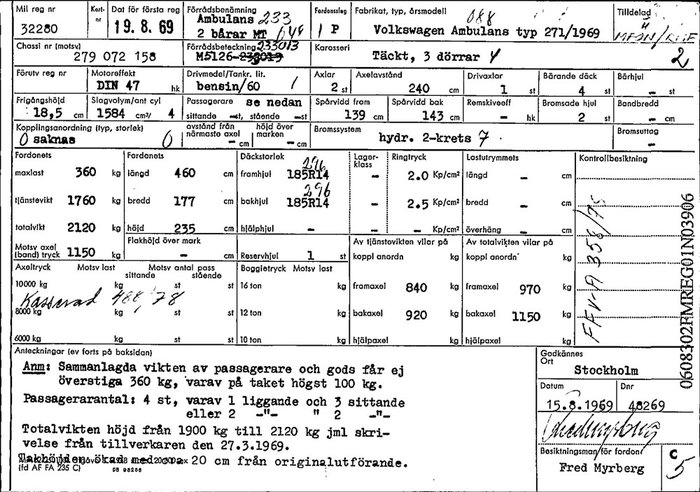 Mil reg nr Kort- nr Dat för första reg Förrådsbenämning Fordonsslag Fabrikat, typ, årsmodell Tilldelad
32280 19.8.69 Ambulans 233 1 P 088 Volkswagen Ambulans typ 271/1969
2 bårar MT
Chassi nr (motsv) Förrådsbeteckning 233013 Karosseri
279 072 158 M5126-233013 Täckt, 3 dörrar 4 2
Förutv reg nr Motoreffekt Drivmedel/Tankr. lit. Axlar Axelavstånd Drivaxlar Bärande däck Bärhjul
DIN 47 hk bensin/60 / 2 st 240 cm 1 st 4 st – st
Frigångshöjd Slagvolym/ant cyl Passagerare se nedan Spårvidd fram Spårvidd bak Remskiveeff Bromsade hjul Bromsband
18,5 cm 1584 cm³/ 4 sittande –st, stående –st 139 cm 143 cm – hk 2 st – st
Kopplingsanordning (typ, storlek) avstånd från närmaste axel höjd över marken Bromssystem Bromsuttag
0 saknas 0 – cm – cm hydr. 2-krets 7 –
Fordonets Fordonets Däckstorlek 296 Lager- klass Ringtryck Lastutrymmets Kontrollbesiktning
maxlast 360 kg längd 460 cm framhjul 185R14 – 2.0 Kp/cm² längd – cm
296
tjänstevikt 1760 kg bredd 177 cm bakhjul 185R14 – 2.5 Kp/cm² bredd – cm
totalvikt 2120 kg höjd 235 cm hjälphjul – – – Kp/cm² överhäng – cm
Motsv axel (band) tryck 1150 kg Flakhöjd över mark – cm Reservhjul 1 st Av tjänstevikten vilar på koppl anordn – kg Av totalvikten vilar på koppl anordn – kg
Axeltryck Motsv last Motsv antal pass sittande stående Boggietryck Motsv last
10000 kg kg st st 16 ton kg framaxel 840 kg framaxel 970 kg
Kasserad 488/78
8000 kg kg st st 12 ton kg bakaxel 920 kg bakaxel 1150 kg
6000 kg kg st st 10 ton kg hjälpaxel – kg hjälpaxel – kg
0608302FMREG01N03906
Anteckningar (ev forts på baksidan) Godkännes
Ort
Anm: Sammanlagda vikten av passagerare och gods får ej Stockholm
överstiga 360 kg, varav på taket högst 100 kg. Datum Dnr
Passagerarantal: 4 st, varav 1 liggande och 3 sittande 15.8.1969 48269
eller 2 -"- " 2 -"-
Totalvikten höjd från 1900 kg till 2120 kg jml skri-
velse från tillverkaren den 27.3.1969.
Takhöjden ökad med ca 20 cm från originalutförande. Besiktningsman för fordon
(fd AF FA 235 C) Fred Myrberg C 5